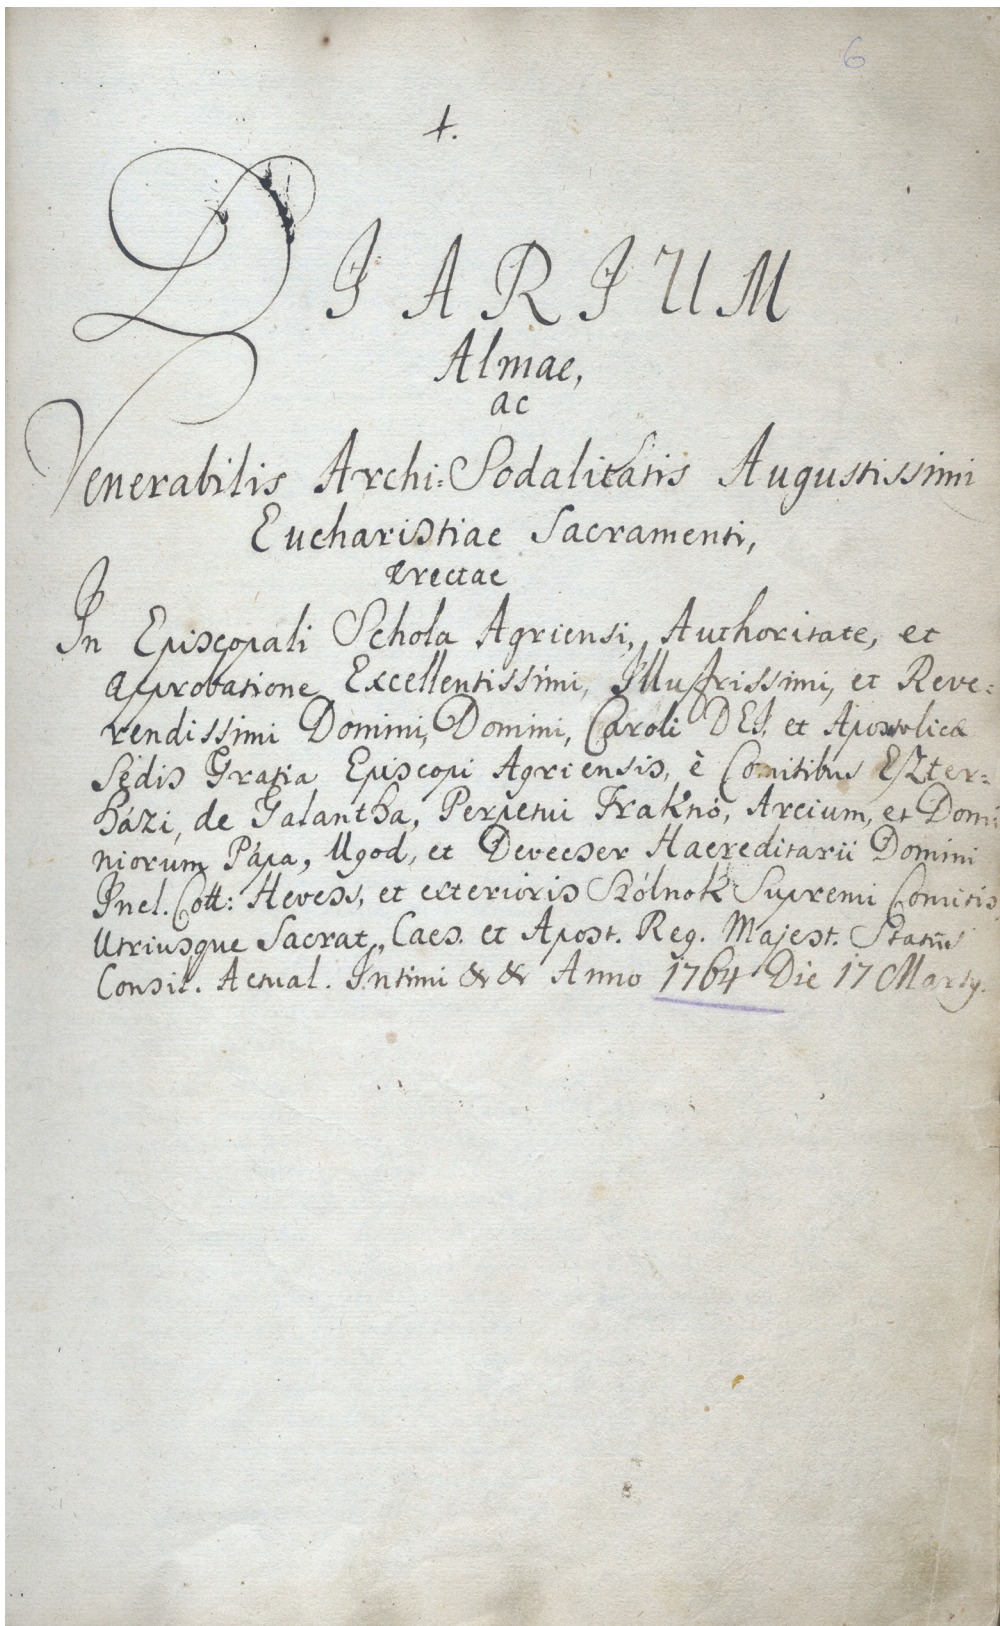 6
†.
DIARIUM
Almae,
ac
Venerabilis Archi=Sodalitatis Augustissimi
Eucharistiae Sacramenti,
Erectae
In Episcopali Schola Agriensi, Authoritate, et
approbatione Excellentissimi, Illustrissimi, et Reve=
rendissimi Domini, Domini, Caroli DEI, et Apostolica
Sedis Gratia Episcopi Agriensis, è Comitibus Eszter=
házi, de Galantha, Perpetui Fraknó, Arcium, et Domi
niorum Pápa, Ugod, et Deveeser Haereditarii Domini
Incl. Cott: Heves, et exterioris Szólnok Supremi Comitis
Utriusque Sacrat. Caes. et Apost. Reg. Majest. Statûs
Consil. Actual. Intimi & & Anno 1764 Die 17 Marty.